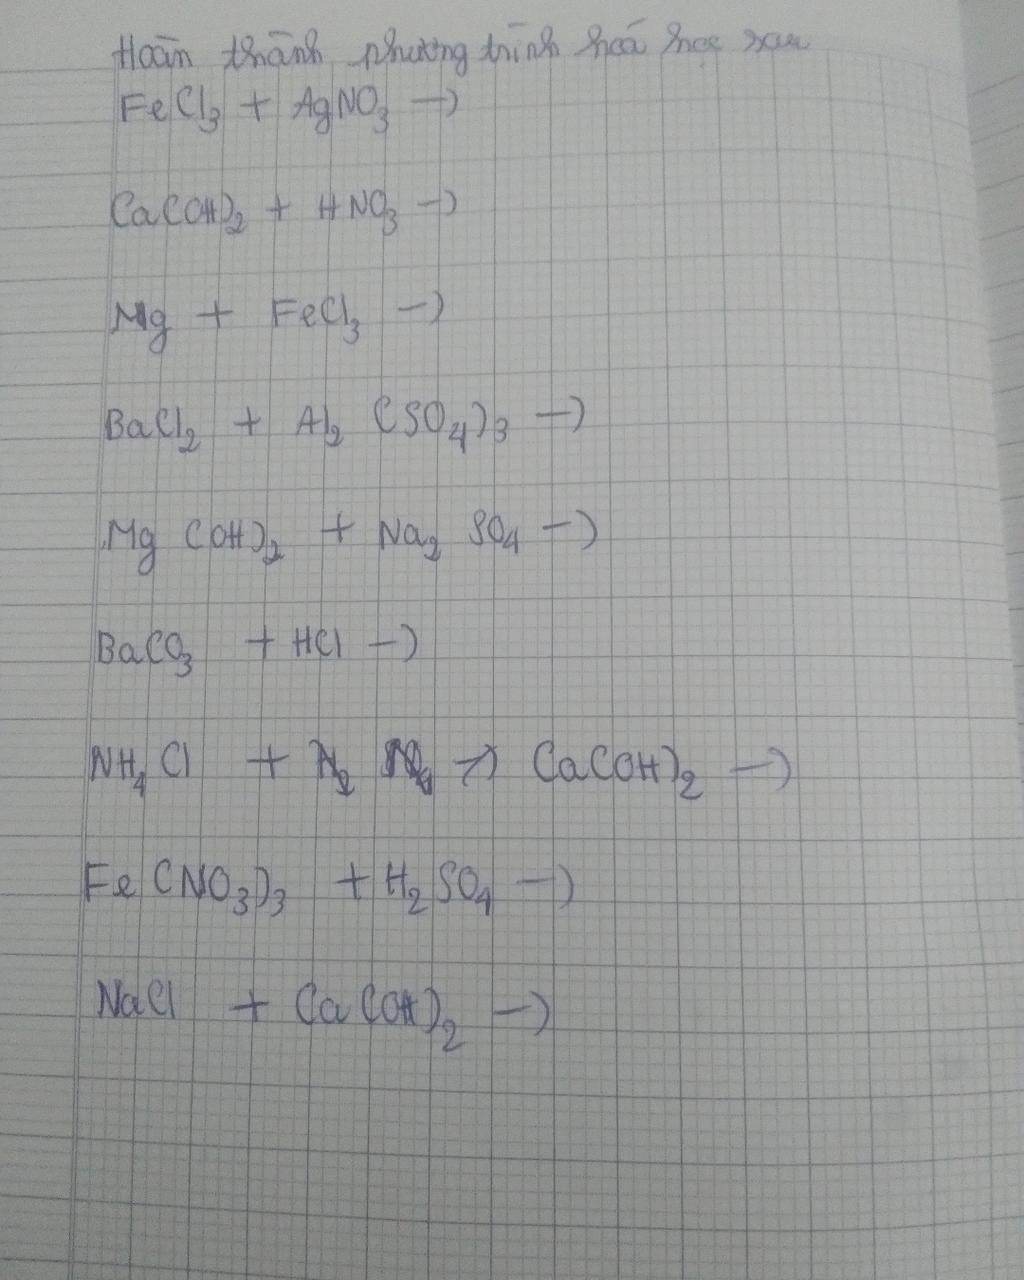 Hoàn thành phương trình hoá học sau
FeCl₃ + AgNO₃ →
Ca(OH)₂ + HNO₃ →
Mg + FeCl₃ →
BaCl₂ + Al₂ (SO₄)₃ →
Mg (OH)₂ + Na₂ SO₄ →
BaCO₃ + HCl →
NH₄ Cl + Ca(OH)₂ →
Fe (NO₃)₃ + H₂ SO₄ →
NaCl + Ca(OH)₂ →